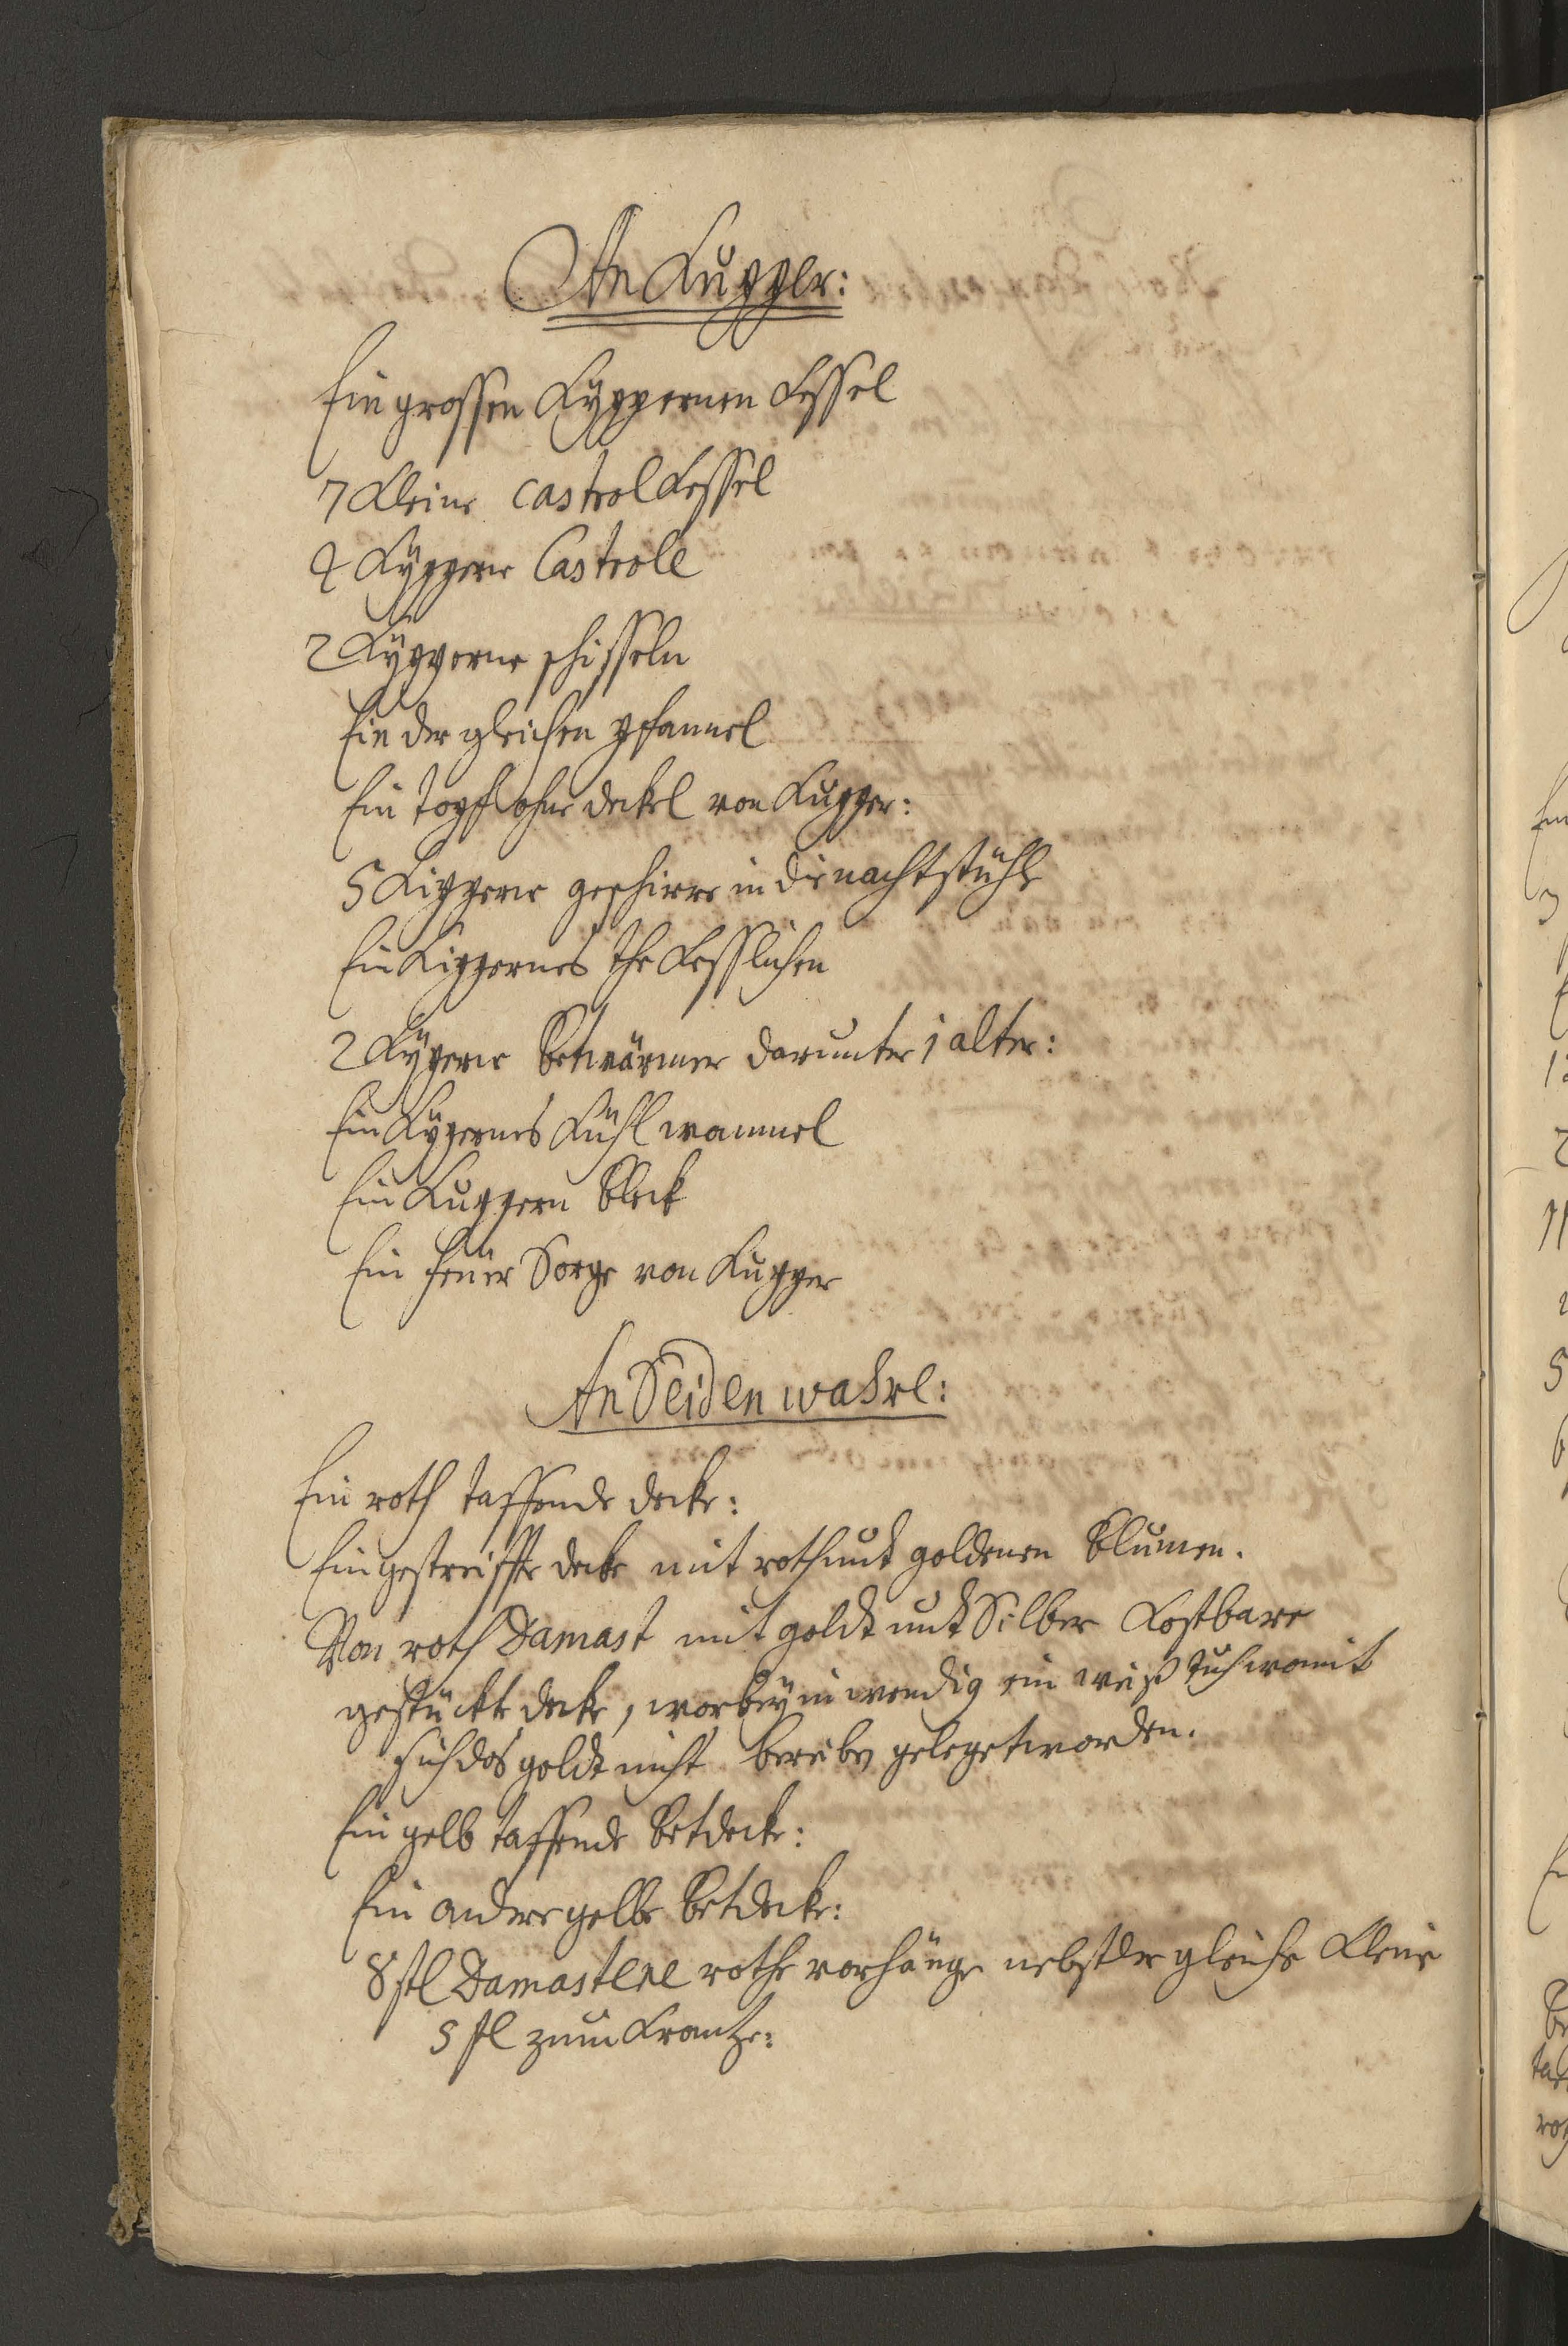 An Kupper:
Ein grossen Kÿppernen Kessel
7 Kleine Castrol Kessel
4 Kÿpperne Castrole
2 Kÿpperne schisseln
Ein der gleichen pfannel
Ein topf ohne deckel von Kupper:
5 Kipperne geschirre in die nachtstühle
Ein Kippernes The Kesslichen
2 Kÿperne betwärmer darunter 1 alter:
Ein Kÿpernes Kühl wannel
Ein Kuppern Bleck
Ein feüer Sorge von Kupper
An Seiden wahre:
Ein roth taffende decke:
Ein gestreiffte decke mit roth undt goldenen Blumen.
Von roth Damast mit goldt undt Silber Kostbare
gestückte decke, worbeÿ inwendig ein weiß tuch womit
sich das goldt nicht bereibe geleget worden.
Ein gelb taffende betdecke:
Ein andere gelbe betdecke:
8 stl Damastene rothe vorhänge nebst der gleiche Kleine
5 stl zum Krantze: